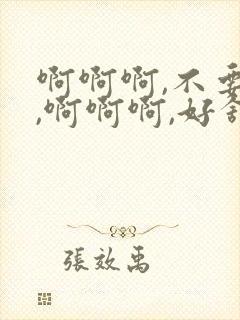 啊啊啊,不要
,啊啊啊,好舒
張效禹